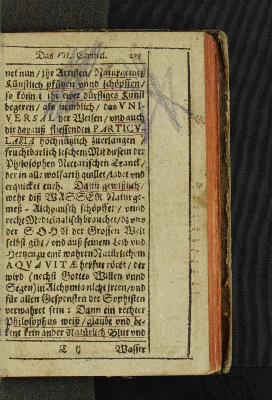 Das VII. Capitel. 275
net nun / ihr Artisten / Naturgemeß
Künstlich pflügen vnnd schöpffen /
so könn-t ihr ewer dürstiges Künst
begeren / als nemblich / das VNI-
VERSAL der Weisen / vnd auch
die darauß fliessenden PARTICV-
LARIA hochnützlich zuerlangen /
fruchtbarlich leschen: Mit diesem der
Philosophen Nectarischen Tranck /
der in alle wolfartz quillet / labet vnd
erquicket euch. Dann gewißlich /
wehr diß WASSER Naturge-
meß - Alchymisch schöpffet / vnnd
recht Medicinalisch brauchet /
der SOHN der Grossen Welt
selbst gibt / vnd auß seinem Leib vnd
Hertzen ein wahren Natürlichen
AQVAVITÆ herfür
wird (nechst Gottes Willen vnnd
Segen) in Alchymia nicht irren / vnd
für allen Gespensten der Sophisten
verwahret seyn: Dann ein rechter
Philosophus weiß / glaubt vnd be-
kent kein ander Natürlich Blut vnd
T ij Wasser